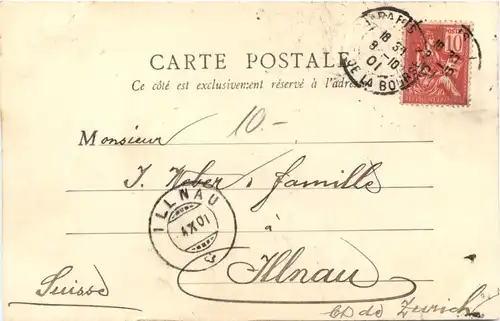 PARIS
18 30
8 - 10
01
DE LA BOURSE
10
CARTE POSTALE
Ce côté est exclusivement réservé à l'adresse
10.-
Monsieur
J. Weber & famille
ILLNAU
1.X.01
à
Illnau
Suisse
Ct de Zurich